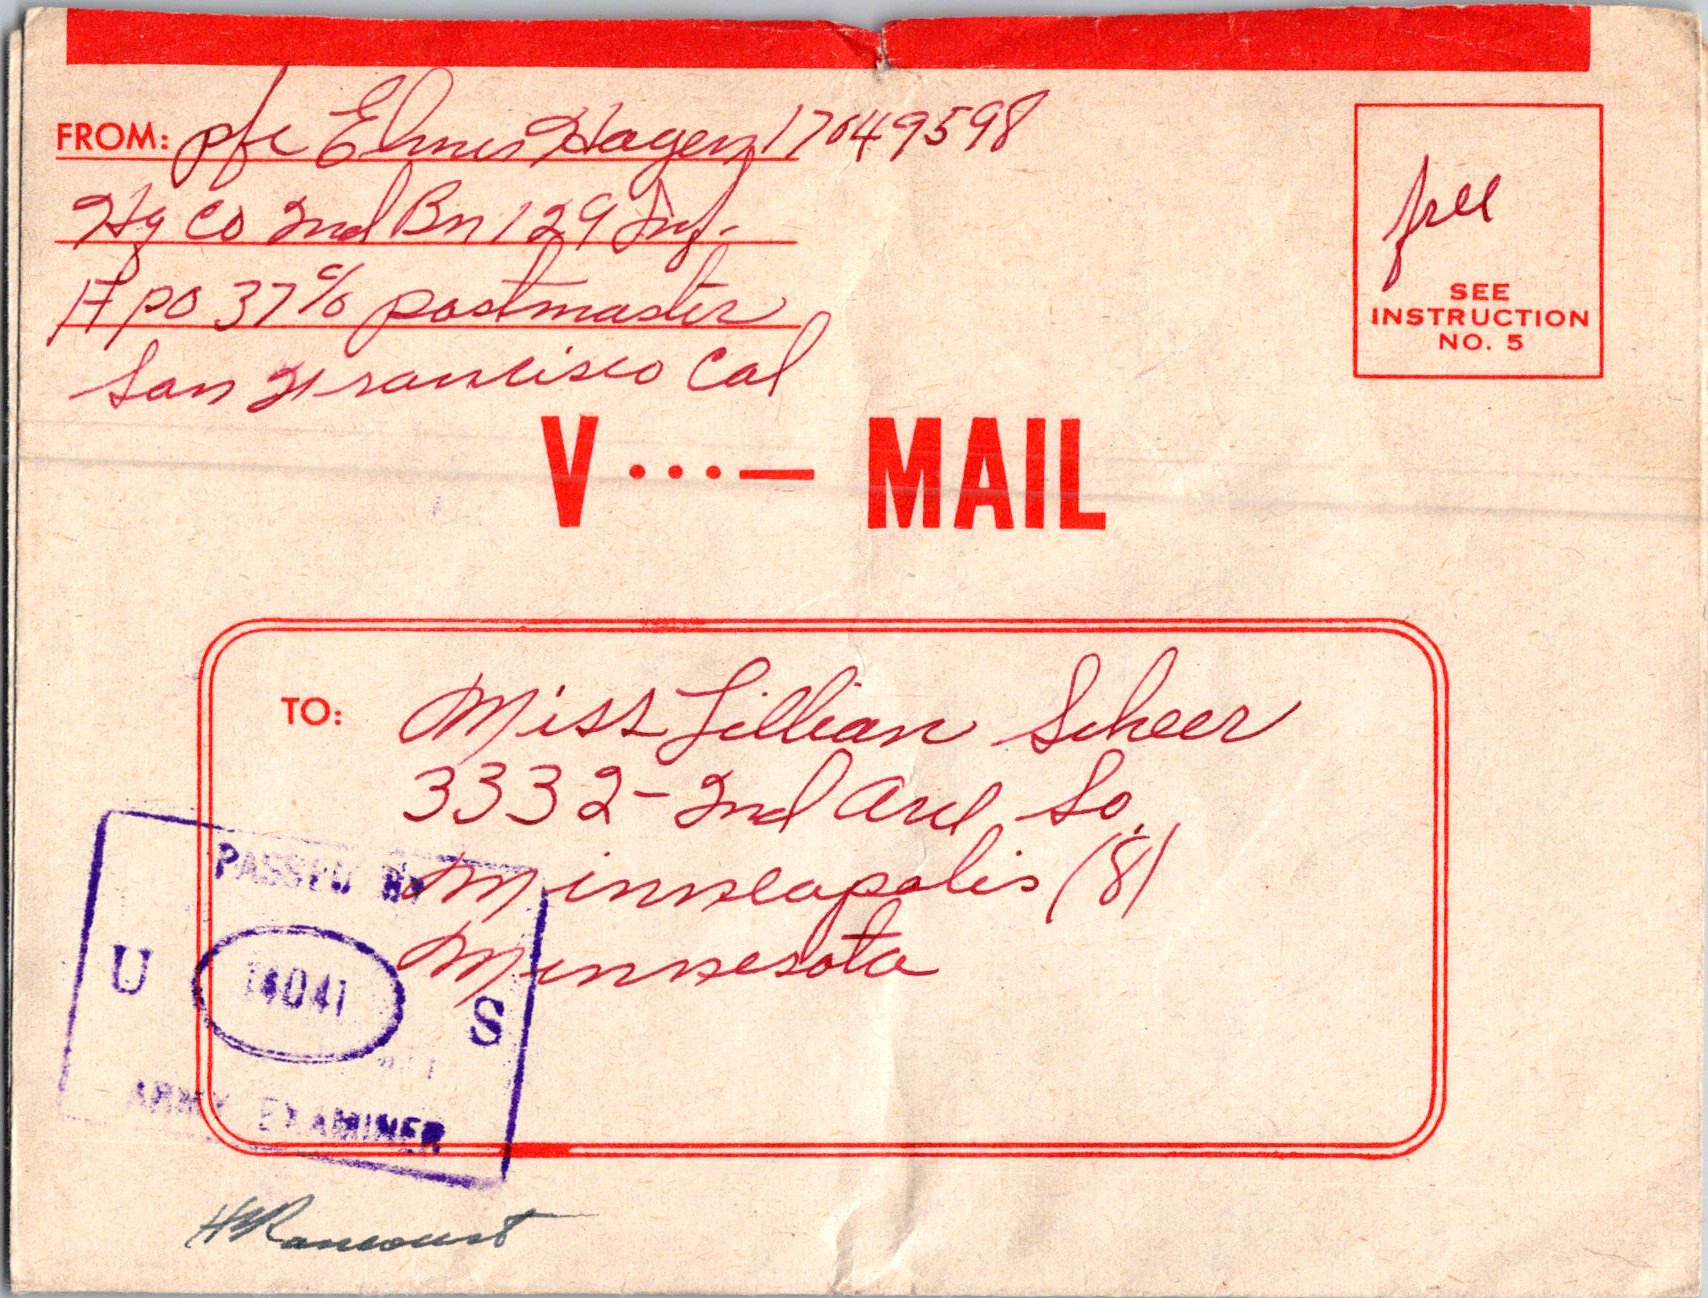 FROM: pfc Elmer Hagen 17049598
Hq Co 2nd Bn 129 Inf.
A po 37 c/o postmaster
San Francisco Cal
free
SEE
INSTRUCTION
NO. 5
V ...— MAIL
TO: Miss Lillian Scheer
3332-2nd Ave So.
Minneapolis (8)
Minnesota
PASSED BY
U 14041 S
ARMY EXAMINER